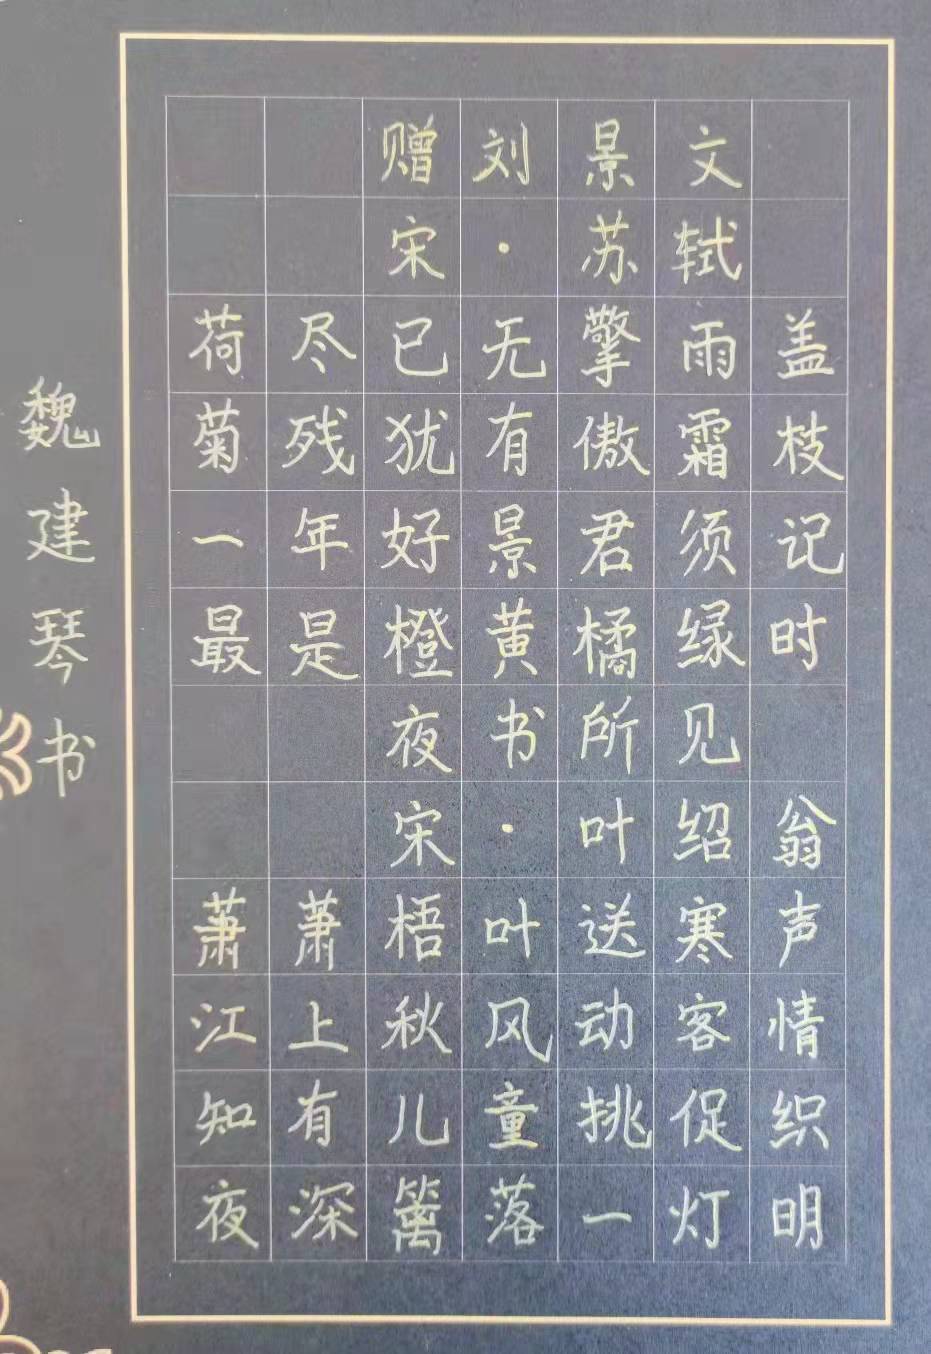 赠刘景文
宋·苏轼
荷尽已无擎雨盖
菊残犹有傲霜枝
一年好景君须记
最是橙黄橘绿时
夜书所见
宋·叶绍翁
萧萧梧叶送寒声
江上秋风动客情
知有儿童挑促织
夜深篱落一灯明
魏建琴书